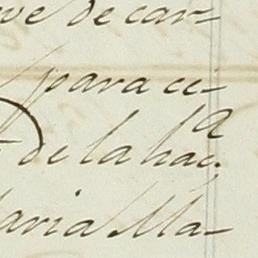 ve de car-
para ce-
de la hac.da
aria Ma-